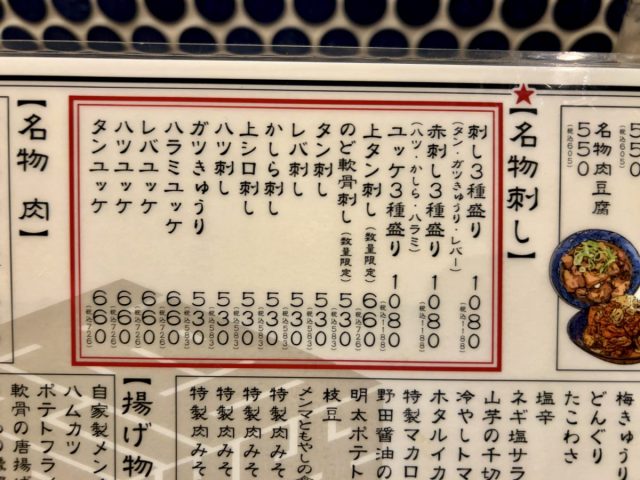 550
(税込605)
名物肉豆腐
550
(税込605)
【名物刺し】
刺し3種盛り 1080
(タン・ガツきゅうり・レバー) (税込1188)
赤刺し3種盛り 1080
(ハツ・かしら・ハラミ) (税込1188)
ユッケ3種盛り 1080
(税込1188)
上タン刺し(数量限定) 660
(税込726)
のど軟骨刺し(数量限定) 530
(税込583)
タン刺し 530
(税込583)
レバ刺し 530
(税込583)
かしら刺し 530
(税込583)
上シロ刺し 530
(税込583)
ハツ刺し 530
(税込583)
ガツきゅうり 530
(税込583)
ハラミユッケ 660
(税込726)
レバユッケ 660
(税込726)
ハツユッケ 660
(税込726)
タンユッケ 660
(税込726)
【名物 肉】
梅きゅうり
どんぐり
たこわさ
塩辛
ネギ塩サラ
山芋の千切
冷やしトマ
ホタルイカ
特製マカロ
野田醤油の
明太ポテト
枝豆
メンマともやしの
特製肉みそ
特製肉みそ
特製肉みそ
特製肉みそ
【揚げ物
自家製メン
ハムカツ
ポテトフラ
軟骨の唐揚